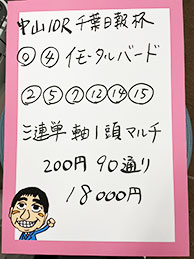 中山10R 千葉日報杯
◎ ④ イモータルバード
② ⑤ ⑦ ⑫ ⑭ ⑮
三連単 軸1頭マルチ
200円 90通り
18000円